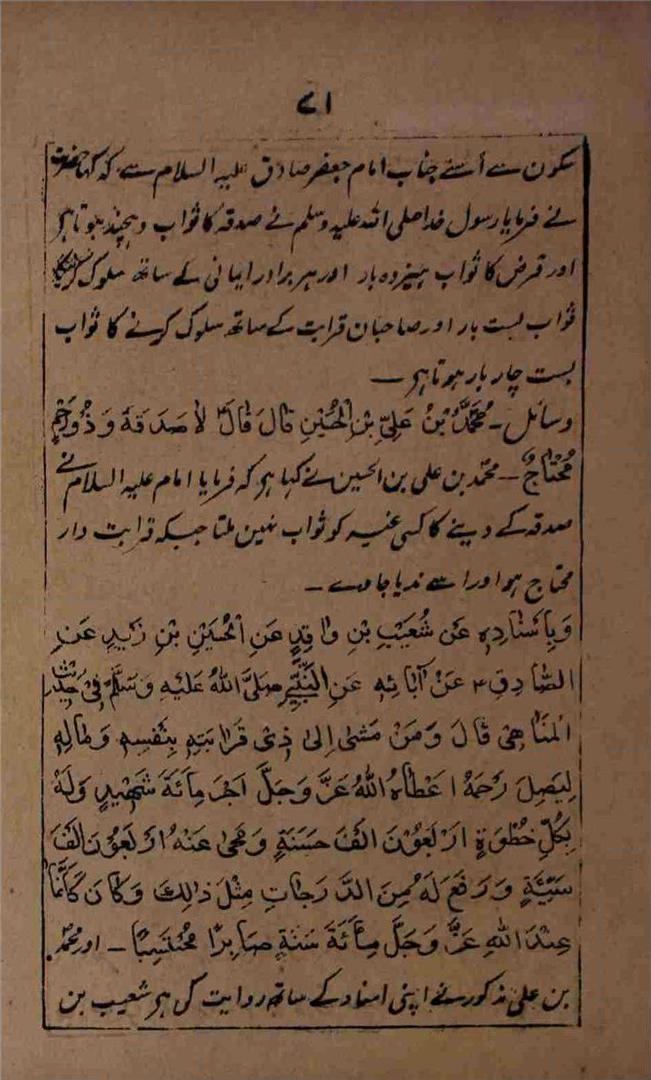 ۷۱
سکون سے اُسنے جناب امام جعفر صادق علیہ السلام سے کہ کہا حضرت
نے فرمایا رسول خدا صلی اللہ علیہ وسلم نے صدقہ کا ثواب دہچند ہوتا ہر
اور قرض کا ثواب ہیزدہ بار اور ہر برادر ایمانی کے ساتھ سلوک
ثواب بست بار اور صاحبان قرابت کے ساتھ سلوک کرنے کا ثواب
بست چار بار ہوتا ہر ــ
وسائل ۔ مُحَمَّدُ بْنُ عَلِیِّ بْنِ الْحُسَیْنِ قَالَ قَالَ لَا صَدَقَةَ وَذُوْرَحِمٍ
مُحْتَاجٌ ــ محمد بن علی بن الحسین نے کہا ہر کہ فرمایا امام علیہ السلام نے
صدقہ کے دینے کا کسی غیر کو ثواب نہین ملتا جبکہ قرابت دار
محتاج ہو اور اسے ندیا جاوے ــ
وَبِاَسْنَادِہٖ عَنْ شُعَیْبِ بْنِ وَاقِدٍ عَنِ الْحُسَیْنِ بْنِ زَیْدٍ عَنِ
الصَّادِقِ ۴ عَنْ آبَائِہٖ عَنِ النَّبِیِّ صَلَّی اللّٰهُ عَلَیْہِ وَسَلَّمَ فِیْ حَدِیْثِ
الْمَنَاهِیْ قَالَ وَمَنْ مَشٰی اِلٰی ذِیْ قَرَابَتِہٖ بِنَفْسِہٖ وَمَالِہٖ
لِیَصِلَ رَحِمَهُ اَعْطَاہُ اللّٰهُ عَزَّ وَجَلَّ اَجْرَ مِائَةَ شَهِیْدٍ وَلَهُ
بِکُلِّ خُطْوَةٍ اَرْبَعُوْنَ اَلْفَ حَسَنَةٍ وَمَحٰی عَنْهُ اَرْبَعُوْنَ اَلْفَ
سَیِّئَةٍ وَرَفَعَ لَهُ مِنَ الدَّرَجَاتِ مِثْلَ ذٰلِكَ وَکَانَ کَاَنَّمَا
عِنْدَ اللّٰہِ عَزَّ وَجَلَّ مِائَةَ سَنَةٍ صَابِرًا مُحْتَسِبًا ــ اور محمد
بن علی مذکور نے اپنی اسناد کے ساتھ روایت کی ہر شعیب بن